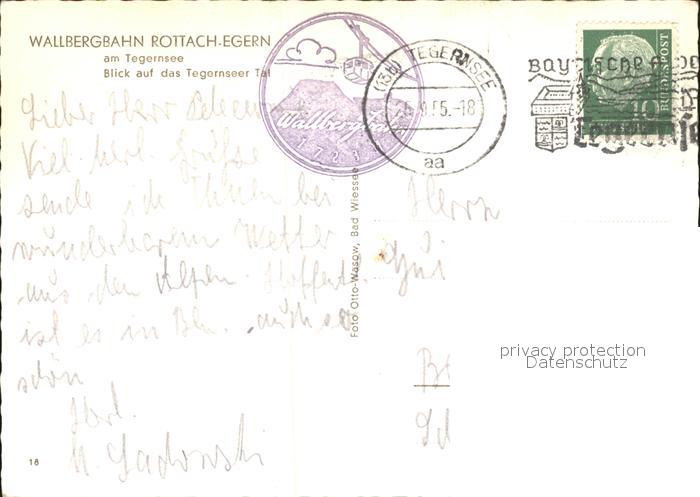 WALLBERGBAHN ROTTACH-EGERN
am Tegernsee
Blick auf das Tegernseer Tal
Wallbergbahn
1723
(13b) TEGERNSEE
.9.55.-18
aa
BAYRISCHE
Tegernsee
10
BUNDESPOST
Lieber Herr
Viel. herl. Grüße
sende ich Ihnen bei
wunderbarem Wetter
aus den Alpen. Hoffentl.
ist es in Bln. auch so
schön
Herl.
Foto Otto-Wasow, Bad Wiessee
Herrn
privacy protection
Datenschutz
18